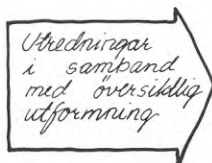 Utredningar
i samband
med översiktlig
utformning